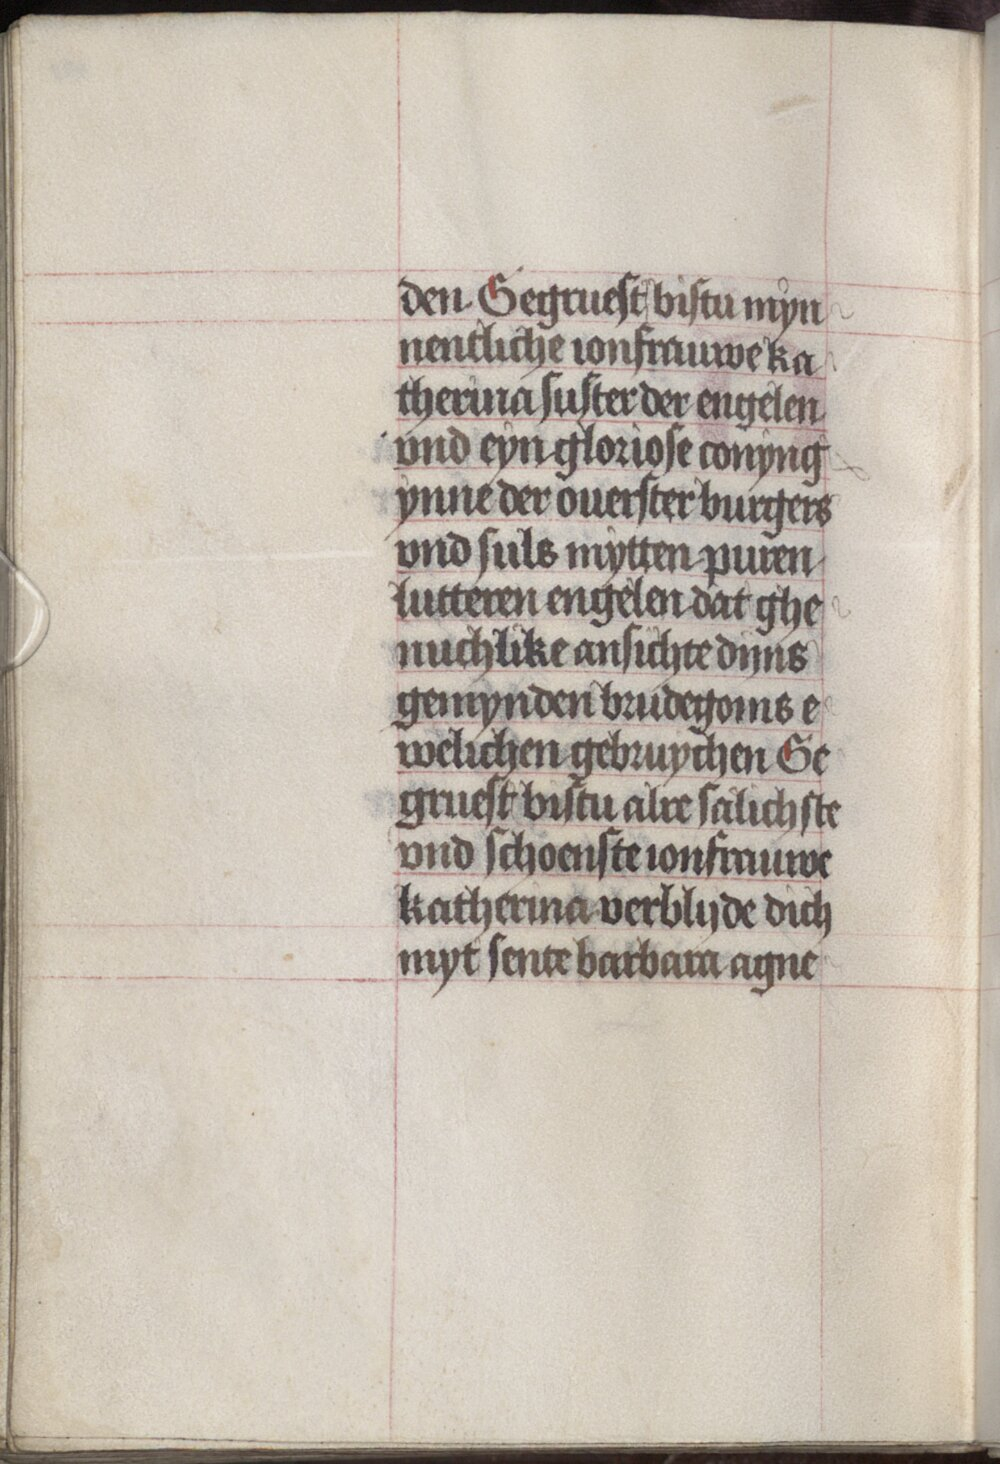 den. Gegruest bistu myn
nentliche ionfrauwe ka
therina suster der engelen
vnd eyn gloriose conyng
ynne der ouerster burgers
vnd suls mytten puren
lutteren engelen dat ghe
nuchlike ansichte dijns
gemynden brudegoms e
welichen gebruychen Ge
gruest bistu alre salichste
vnd schoenste ionfrauwe
katherina verblijde dich
myt sente barbara agne